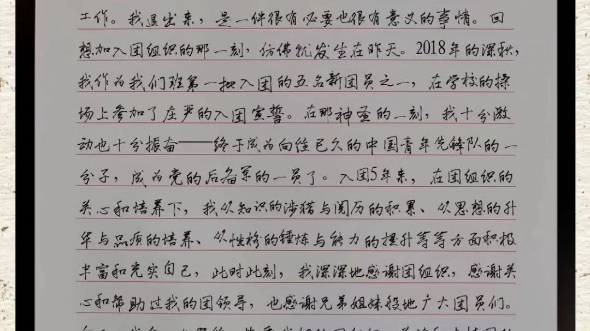 工作。我退出来，是一件很有必要也很有意义的事情。回
想加入团组织的那一刻，仿佛就发生在昨天。2018年的深秋，
我作为我们班第一批入团的五名新团员之一，在学校的操
场上参加了庄严的入团宣誓。在那神圣的一刻，我十分激
动也十分振奋——终于成为向往已久的中国青年先锋队的一
分子，成为党的后备军的一员了。入团5年来，在团组织的
关心和培养下，我从知识的涉猎与阅历的积累、从思想的升
华与品质的培养、从性格的锤炼与能力的提升等等方面积极
丰富和充实自己，此时此刻，我深深地感谢团组织，感谢关
心和帮助过我的团领导，也感谢兄弟姐妹般地广大团员们。